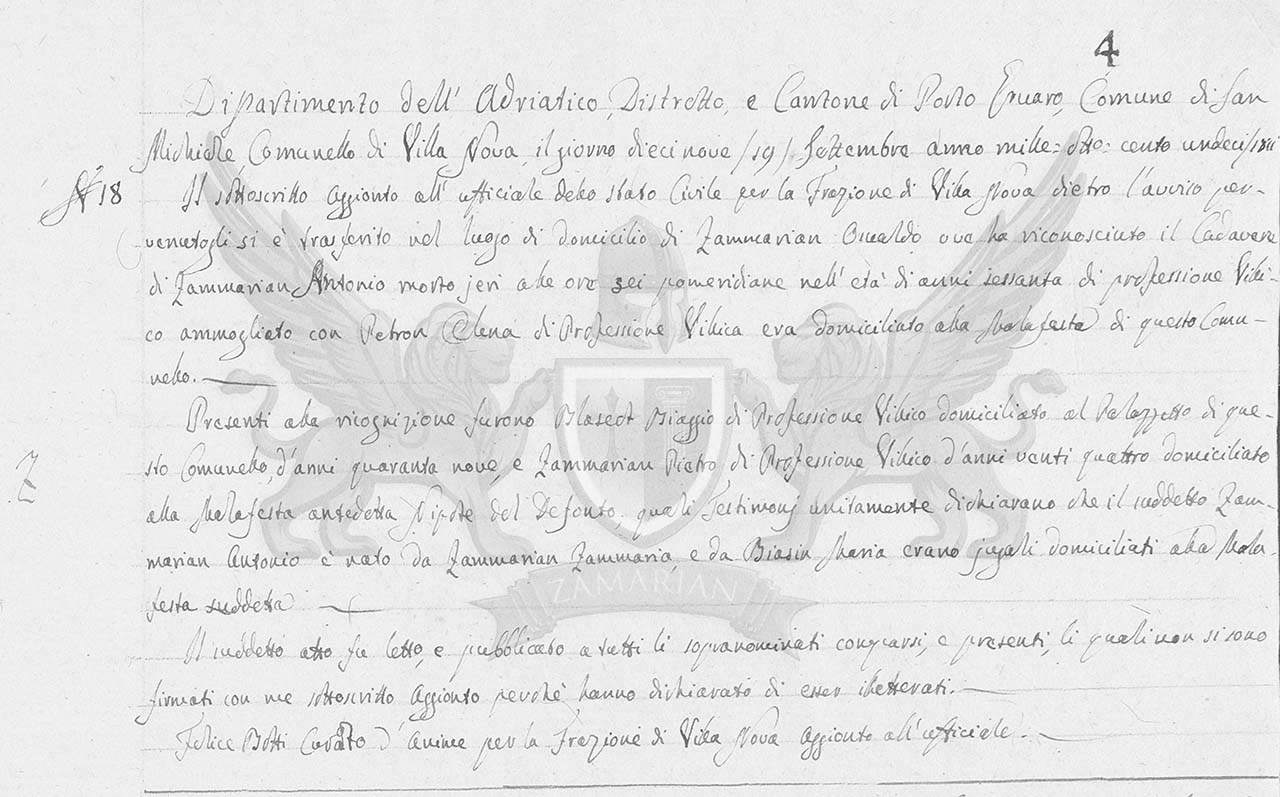 4
Dipartimento dell' Adriatico, Distretto, e Cantone di Porto Gruaro, Comune di San
Michiele Comunello di Villa Nova, il giorno diecinove /19/ Settembre anno mille= otto= cento undeci/1811
N 18 Il sottoscritto Aggionto all' ufficiale dello stato Civile per la Frazione di Villa Nova dietro l'avviso per-
venutogli si è trasferito nel luogo di domicilio di Zammarian Osualdo ove ha riconosciuto il Cadavere
di Zammarian Antonio morto jeri alle ore sei pomeridiane nell' età di anni sessanta di professione Villi-
co ammogliato con Petron Elena di Professione Villica era domiciliato alla Malafesta di questo Comu-
nello.
Presenti alla ricognizione furono Blaseot Biaggio di Professione Villico domiciliato al Palazzetto di que-
sto Comunello, d'anni quaranta nove, e Zammarian Pietro di Professione Villico d'anni venti quattro domiciliato
alla Malafesta antedetta Nipote del Defonto, quali Testimonj unitamente dichiarano che il suddetto Zam-
marian Antonio è nato da Zammarian Zammaria, e da Biasin Maria erano jugali domiciliati alla Mala-
festa suddetta
ZAMARIAN
Il suddetto atto fu letto, e pubblicato a tutti li sopranominati comparsi, e presenti, li quali non si sono
firmati con me sottoscritto Aggionto perchè hanno dichiarato di esser illetterati.
Felice Botti Curato d' Anime per la Frazione di Villa Nova Aggionto all' ufficiale.